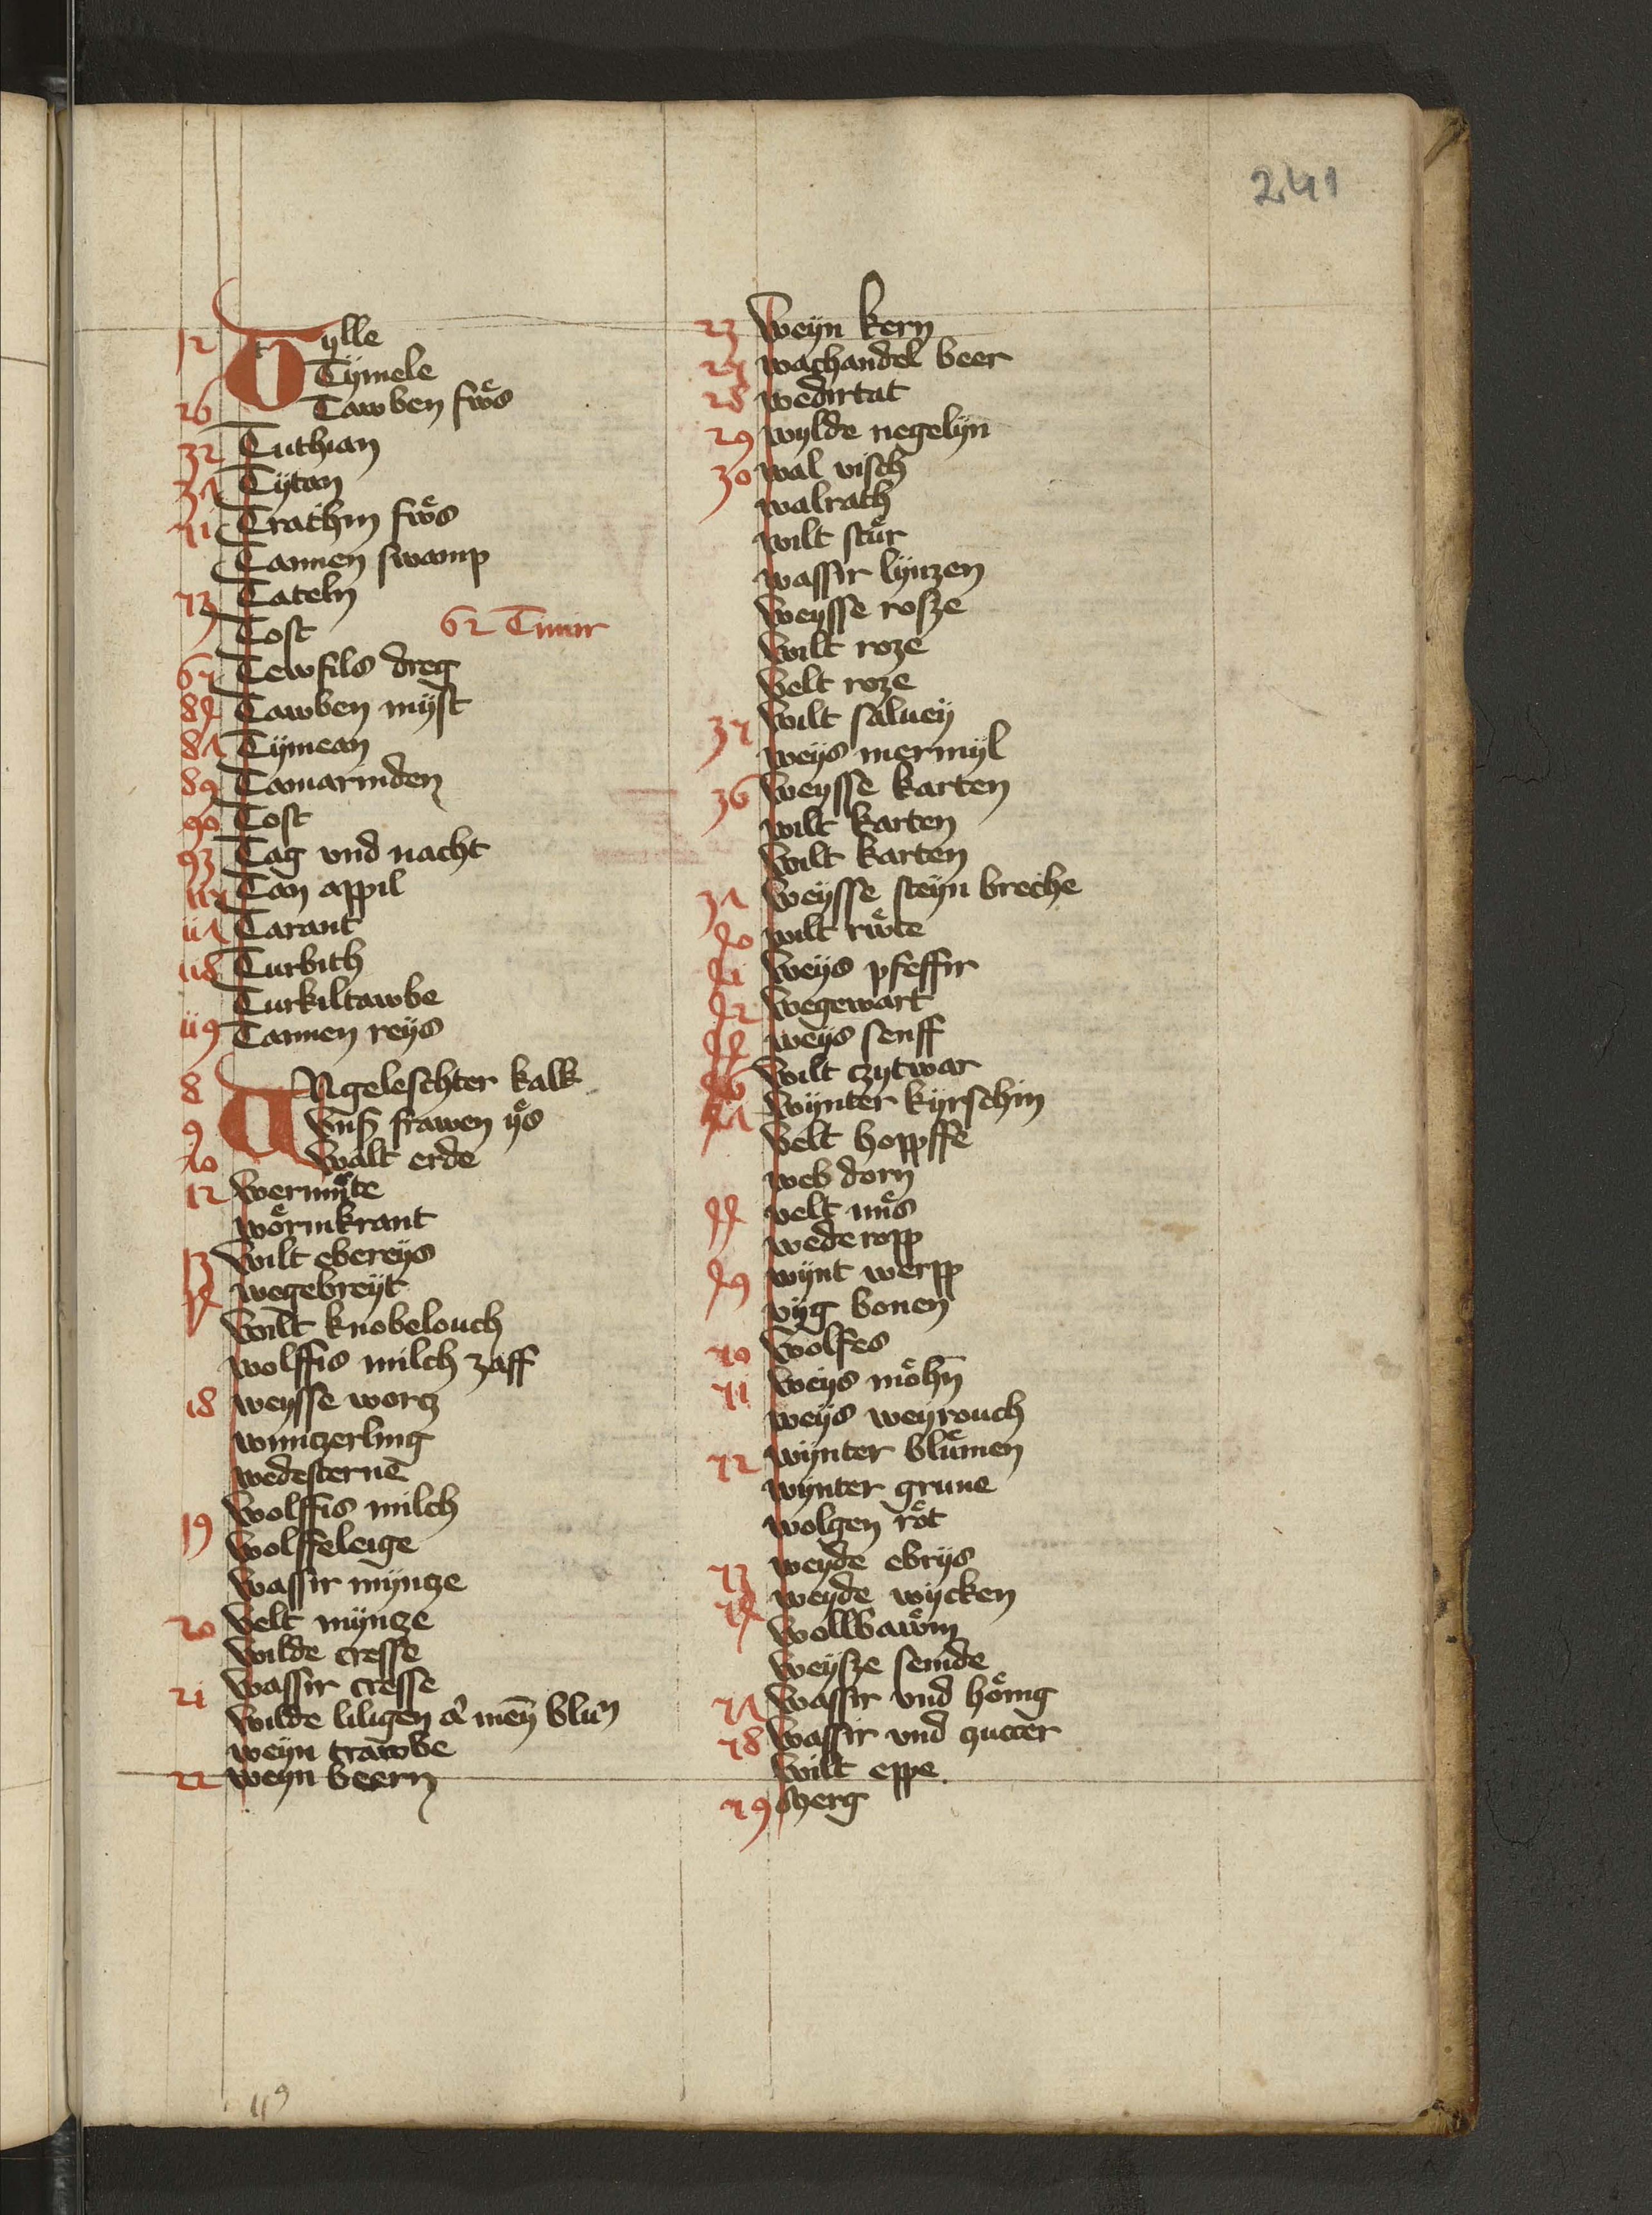 241
12 Tylle
Tymele
26 Tawben fuͤs
32 Tuthian
37 Tytan
51 Trachin fuͤs
Tannen swamp
53 Tateln
Tost 62 Timir
65 Tewfils dreg
84 Tawben myst
87 Tymean
89 Tamarinden
90 Tost
93 Tag vnd nacht
115 Tan appil
117 Tarant
118 Turbith
Turkiltawbe
119 Tannen reys
8 VNgeleschter kalk
9 Vnser frawen ys
10 Walt erde
12 Wermute
woͤrmkraut
13 Wilt ebereys
14 wegebreyt
Wilt knobelouch
wolffis milch zaff
18 weysse worcz
wunczerling
wedesterne
Wolffis milch
19 Wolffeleige
Wassir myncze
20 Velt myncze
Wilde cresse
21 Wassir cresse
Wilde liligen blum
weyn trawbe
22 weyn beern
23 Weyn kern
25 wachandel beer
28 wedirtat
29 wylde negelyn
30 wal visch
walrath
wilt stuͤr
wassir lynzen
Weysse rosze
Wilt roze
Velt roze
35 Wilt saluey
weys mermyl
36 Weysse karten
wilt karten
Wilt karten
37 Weysse steyn breche
40 wilt ruͤte
41 Weys pfeffir
42 Wegewart
44 weys senff
46 Wilt czytwar
47 Wynter kyrschin
Velt hoppffe
web dorn
velt muͤs
wederopp
49 wynt werpp
vyg bonen
50 Wolfes
51 Weys moͤhn
weys weyrouch
52 wynter bluͤmen
wynter grune
wolgen roͤt
53 weyde ebrys
54 weyde wycken
Wollbawm
Weysze semde
57 Wassir vnd hoͤnig
58 Wassir vnd zuccer
Wilt eppe
59
119